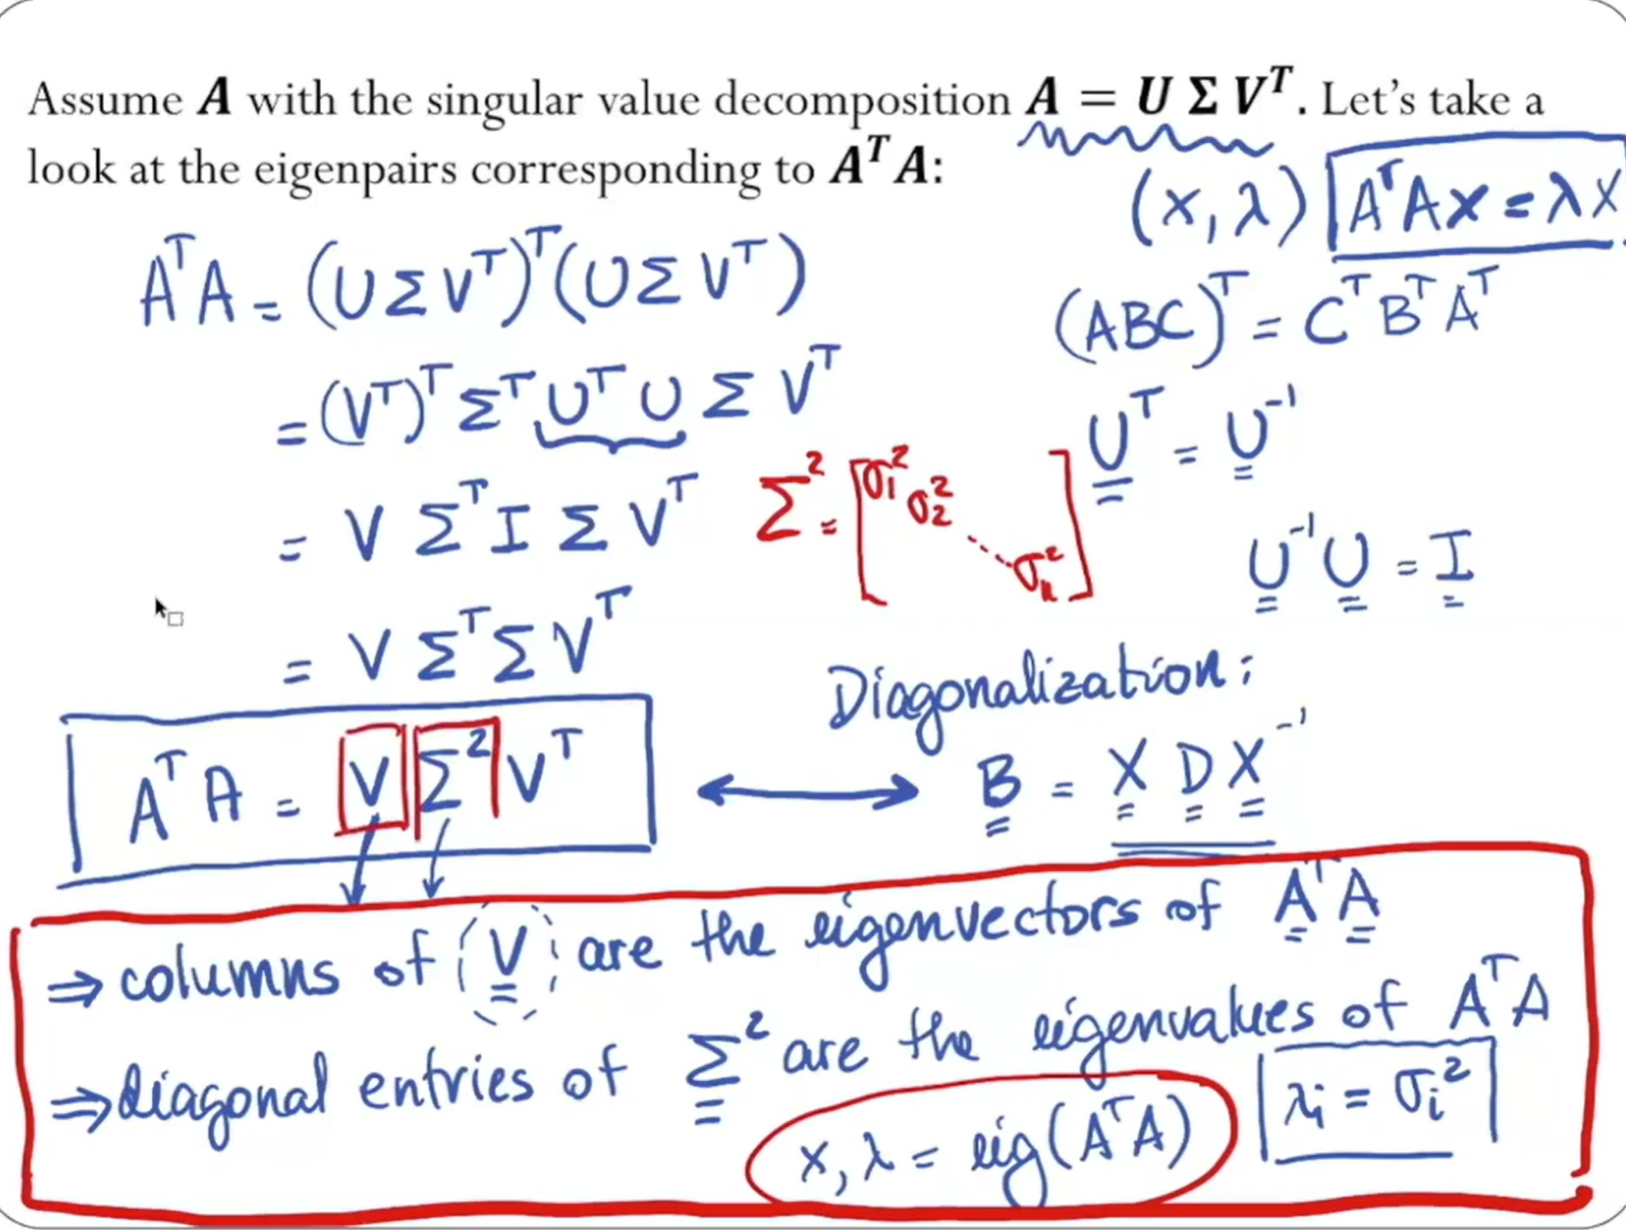 Assume A with the singular value decomposition A = U Σ Vᵀ. Let's take a
look at the eigenpairs corresponding to AᵀA:
(x, λ) AᵀAx = λx
AᵀA = (UΣVᵀ)ᵀ(UΣVᵀ)
(ABC)ᵀ = CᵀBᵀAᵀ
= (Vᵀ)ᵀ Σᵀ Uᵀ U Σ Vᵀ
Uᵀ = U⁻¹
= V Σᵀ I Σ Vᵀ
Σ² = [σ₁² σ₂² ... σₙ²]
U⁻¹U = I
= V Σᵀ Σ Vᵀ
Diagonalization:
AᵀA = V Σ² Vᵀ
B = X D X⁻¹
⇒ columns of V are the eigenvectors of AᵀA
⇒ diagonal entries of Σ² are the eigenvalues of AᵀA
x, λ = eig(AᵀA)
λᵢ = σᵢ²